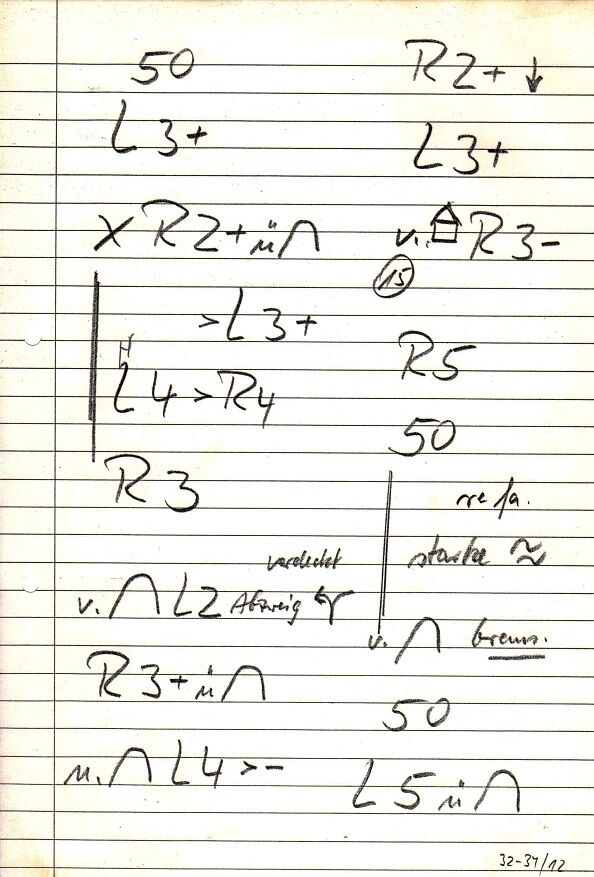 50
L 3+
x R2+ ü ∩
> L 3+
H
L4 > R4
R 3
verdeckt
v. ∩ L2 Abzweig
R 3+ ü ∩
n. ∩ L4 > -
R2+ ↓
L3+
v. R3-
15
R5
50
re fa.
starke ≈
v. ∩ brems.
50
L 5 ü ∩
32-34/12